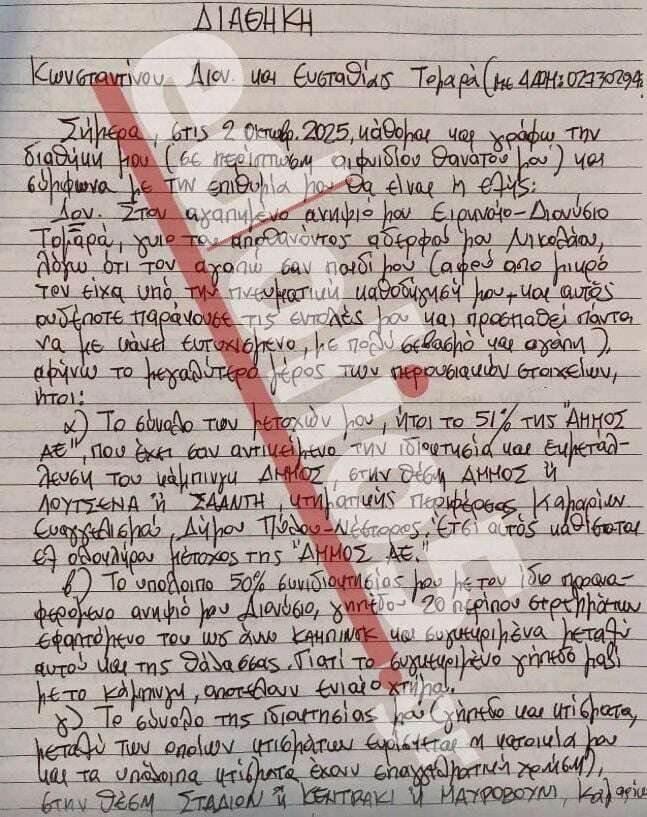 ΔΙΑΘΗΚΗ
Κωνσταντίνου Διον. και Ευσταθίας Τομαρά (με ΑΦΜ: 02730294
Σήμερα, στις 2 Οκτωβρ. 2025, κάθομαι και γράφω την
διαθήκη μου (σε περίπτωση αιφνιδίου θανάτου μου) και
σύμφωνα με την επιθυμία μου θα είναι η εξής:
Στον αγαπημένο ανηψιό μου Ειρηναίο-Διονύσιο
Τομαρά, γυιο του αποθανόντος αδερφού μου Νικολάου,
λόγω ότι τον αγαπώ σαν παιδί μου (αφού από μικρό
τον είχα υπό την πνευματική καθοδήγησή μου και αυτός
ουδέποτε παράκουσε τις εντολές μου και προσπαθεί πάντα
να με κάνει ευτυχισμένο, με πολύ σεβασμό και αγάπη),
αφήνω το μεγαλύτερο μέρος των περουσιακών στοιχείων,
ήτοι:
α) Το σύνολο των μετοχών μου, ήτοι το 51% της "ΑΜΜΟΣ
ΑΕ", που έχει σαν αντικείμενο την ιδιοκτησία και εκμετάλ-
λευση του κάμπινγκ ΑΜΜΟΣ, στην θέση ΑΜΜΟΣ ή
ΛΟΥΤΣΕΝΑ ή ΣΑΑΝΤΗ, κτηματικής περιφέρειας Καμαρίων
Ευαγγελισμού, Δήμου Πύλου-Νέστορος. Έτσι αυτός καθίσταται
εξ ολοκλήρου μέτοχος της "ΑΜΜΟΣ ΑΕ."
β) Το υπόλοιπο 50% συνιδιοκτησίας μου με τον ίδιο προανα-
φερόμενο ανηψιό μου Διονύσιο, γηπέδου 20 περίπου στρεμμάτων
εφαπτόμενο του ως άνω ΚΑΜΠΙΝΓΚ και συγκεκριμένα μεταξύ
αυτού και της θάλασσας. Γιατί το συγκεκριμένο γήπεδο μαζί
με το κάμπινγκ, αποτελούν ενιαίο χτήμα.
γ) Το σύνολο της ιδιοκτησίας μου (γήπεδο και κτίσματα,
μεταξύ των οποίων κτισμάτων ευρίσκεται η κατοικία μου
και τα υπόλοιπα κτίσματα έχουν επαγγελματική χρήση),
στην θέση ΣΤΑΔΙΟΝ ή ΚΕΝΤΡΑΚΙ ή ΜΑΥΡΟΒΟΥΝΙ,